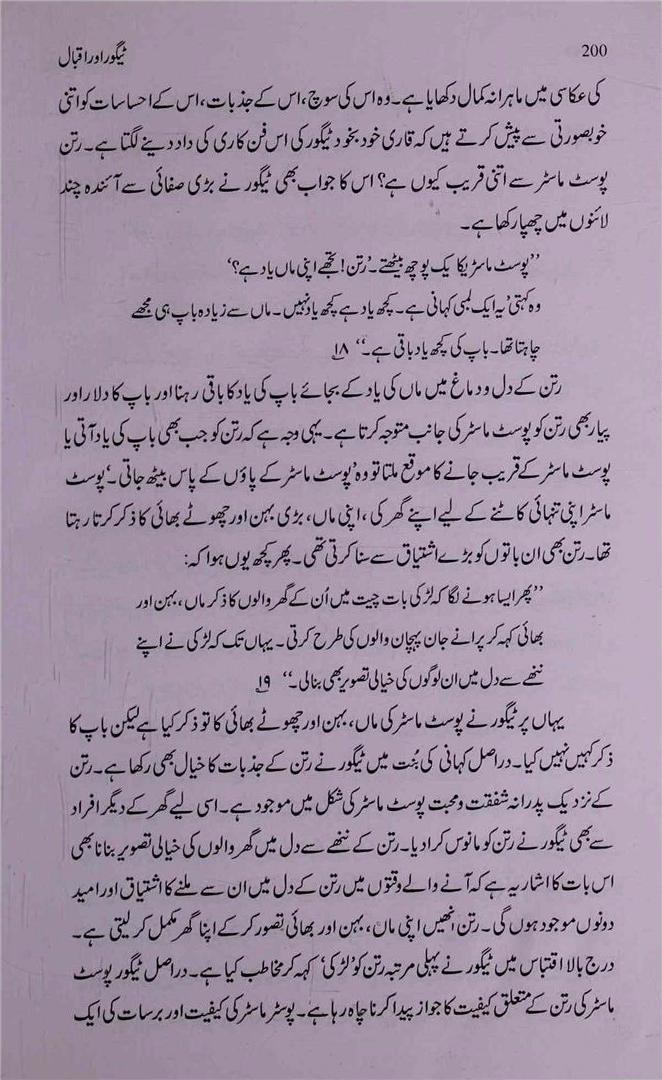 200
ٹیگور اور اقبال
کی عکاسی میں ماہرانہ کمال دکھایا ہے۔ وہ اس کی سوچ، اس کے جذبات، اس کے احساسات کو اتنی
خوبصورتی سے پیش کرتے ہیں کہ قاری خود بخود ٹیگور کی اس فن کاری کی داد دینے لگتا ہے۔ رتن
پوسٹ ماسٹر سے اتنی قریب کیوں ہے؟ اس کا جواب بھی ٹیگور نے بڑی صفائی سے آئندہ چند
لائنوں میں چھپا رکھا ہے۔
”پوسٹ ماسٹر یکا یک پوچھ بیٹھتے۔ ’رتن! تجھے اپنی ماں یاد ہے؟‘
وہ کہتی ’یہ ایک لمبی کہانی ہے۔ کچھ یاد ہے کچھ یاد نہیں۔ ماں سے زیادہ باپ ہی مجھے
چاہتا تھا۔ باپ کی کچھ یاد باقی ہے۔“ ۱۸
رتن کے دل و دماغ میں ماں کی یاد کے بجائے باپ کی یاد کا باقی رہنا اور باپ کا دلار اور
پیار بھی رتن کو پوسٹ ماسٹر کی جانب متوجہ کرتا ہے۔ یہی وجہ ہے کہ رتن کو جب بھی باپ کی یاد آتی یا
پوسٹ ماسٹر کے قریب جانے کا موقع ملتا تو وہ ’پوسٹ ماسٹر کے پاؤں کے پاس بیٹھ جاتی۔‘ پوسٹ
ماسٹر اپنی تنہائی کاٹنے کے لیے اپنے گھر کی، اپنی ماں، بڑی بہن اور چھوٹے بھائی کا ذکر کرتا رہتا
تھا۔ رتن بھی ان باتوں کو بڑے اشتیاق سے سنا کرتی تھی۔ پھر کچھ یوں ہوا کہ:
”پھر ایسا ہونے لگا کہ لڑکی بات چیت میں اُن کے گھر والوں کا ذکر ماں، بہن اور
بھائی کہہ کر پرانے جان پہچان والوں کی طرح کرتی۔ یہاں تک کہ لڑکی نے اپنے
ننھے سے دل میں ان لوگوں کی خیالی تصویر بھی بنا لی۔“ ۱۹
یہاں پر ٹیگور نے پوسٹ ماسٹر کی ماں، بہن اور چھوٹے بھائی کا تو ذکر کیا ہے لیکن باپ کا
ذکر کہیں نہیں کیا۔ دراصل کہانی کی بُنت میں ٹیگور نے رتن کے جذبات کا خیال بھی رکھا ہے۔ رتن
کے نزدیک پدرانہ شفقت و محبت پوسٹ ماسٹر کی شکل میں موجود ہے۔ اسی لیے گھر کے دیگر افراد
سے بھی ٹیگور نے رتن کو مانوس کرا دیا۔ رتن کے ننھے سے دل میں گھر والوں کی خیالی تصویر بنانا بھی
اس بات کا اشاریہ ہے کہ آنے والے وقتوں میں رتن کے دل میں ان سے ملنے کا اشتیاق اور امید
دونوں موجود ہوں گی۔ رتن انھیں اپنی ماں، بہن اور بھائی تصور کر کے اپنا گھر مکمل کر لیتی ہے۔
درج بالا اقتباس میں ٹیگور نے پہلی مرتبہ رتن کو ’لڑکی‘ کہہ کر مخاطب کیا ہے۔ دراصل ٹیگور پوسٹ
ماسٹر کی رتن کے متعلق کیفیت کا جواز پیدا کرنا چاہ رہا ہے۔ پوسٹر ماسٹر کی کیفیت اور برسات کی ایک